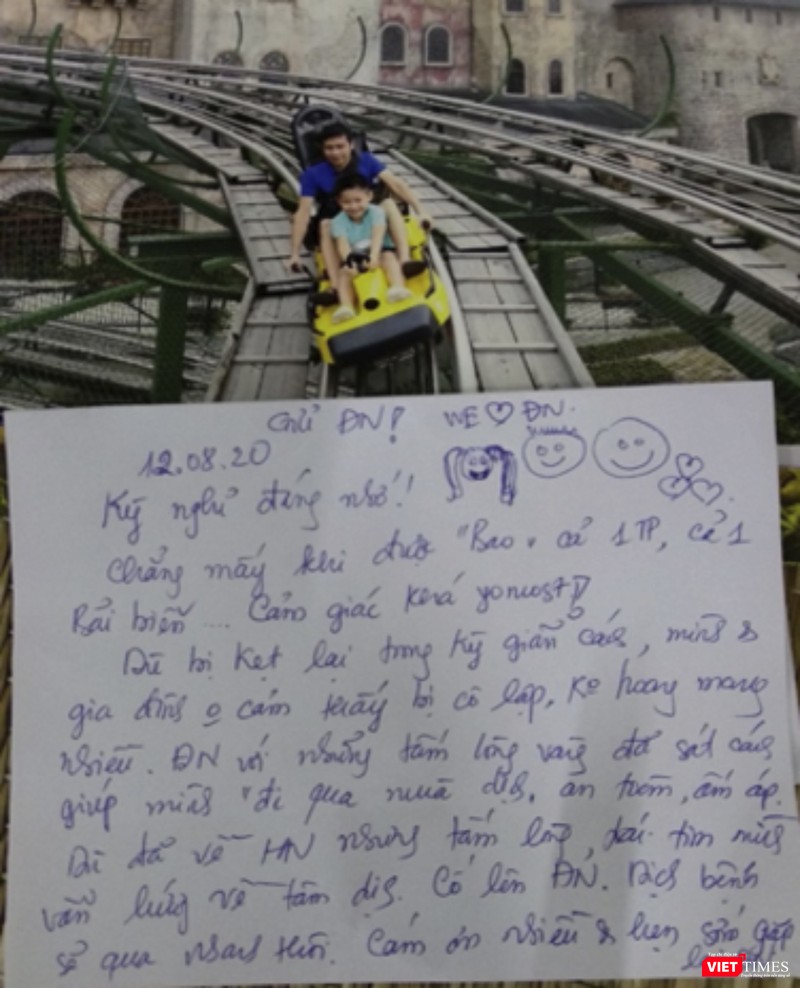 Gửi ĐN! WE ♡ ĐN.
12.08.20
Kỳ nghỉ đáng nhớ!
Chẳng mấy khi được "Bao" cả 1 TP, cả 1
Bãi biển .... Cảm giác khá yomost
Dù bị kẹt lại trong kỳ giãn cách, mình &
gia đình o cảm thấy bị cô lập, ko hoang mang
nhiều. ĐN với những tấm lòng vàng đã sát cánh
giúp mình "đi qua mùa dịch, an toàn, ấm áp.
Dù đã về HN nhưng tấm lòng, trái tim mình
vẫn hướng về tâm dịch. Cố lên ĐN. Dịch bệnh
sẽ qua nhanh thôi. Cảm ơn nhiều & hẹn sớm gặp
VIETTIMES